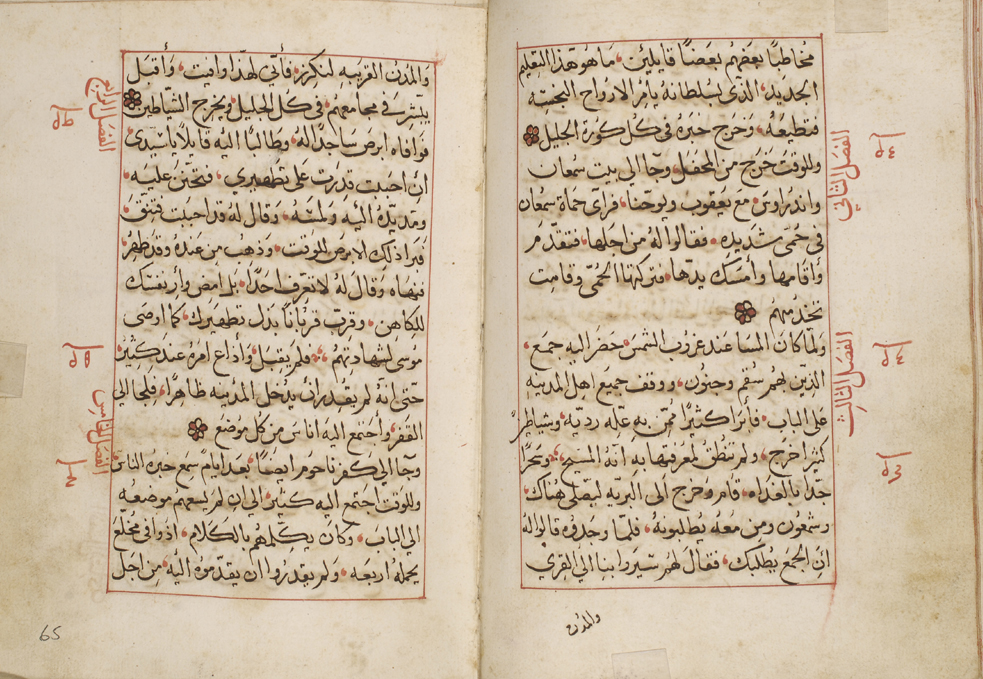 مخاطبًا بعضهم بعضًا قايلين، ما هو هذا التعليم
الجديد، الذى بسلطانه يامر الارواح النجسه
فتطيعه، وخرج خبره في كل كورة الجليل
الفصل الثاني
وللوقت خرج من المحفل، وجا الي بيت سمعان
واندراوس مع يعقوب ويوحنا، فراى حماة سمعان
في حمى شديده، فقالوا له من اجلها، فتقدم
واقامها وامسك يدها، فتركتها الحمى وقامت
تخدمهم
الفصل الثالث
ولما كان المسا عند غروب الشمس، حضر اليه جميع
الذين بهم سقم وجنون، ووقف جميع اهل المدينه
على الباب، فابرا كثيرًا ممن به عله رديه، وشياطين
كثير اخرج، ولم تنطق لمعرفتها به انه المسيح، وسحرًا
جدًا بالغداه، قام وخرج الى البريه ليصلي هناك
وسمعون ومن معه يطلبونه، فلما وجدوه قالوا له
ان الجمع يطلبك، فقال لهم سيروا بنا الي القري
والمدن
والمدن القريبه لنكرز، فاني لهذا وافيت، واقبل
يبشر في مجامعهم، في كل الجليل، ويخرج الشياطين
الفصل الرابع
فوافاه ابرص ساجدًا له، وطالبًا اليه قايلًا ياسيدى
ان احببت قدرت على تطهيري، فتحنن عليه،
ومد يده اليه ولمسه، وقال له قد احببت فتنق،
فبرا ذلك الابرص للوقت، وذهب من عنده وقد طهر،
فنهاه وقال له لا تعرف احدًا، بل امض وار نفسك
للكاهن، وقرب قربانًا بدل تطهيرك، كما اوصى
موسى لشهادتهم، فلم يقبل، واذاع امره عند كثير،
حتى انه لم يقدر ان يدخل المدينه ظاهرًا، فلجا الي
القفر، واجتمع اليه اناس من كل موضع
الفصل الخامس
وجا الي كفرناحوم ايضًا، بعد ايام سمع خبره الناس،
وللوقت اجتمع اليه كثير، الي ان لم يسعهم موضعه
الي الباب، وكان يكلمهم بالكلام، اذ وافي مخلع
يحمله اربعه، ولم يقدروا ان يقدموه اليه، من اجل
65